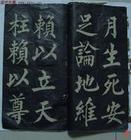 月生死安
足論地維
賴以立天
柱賴以尊